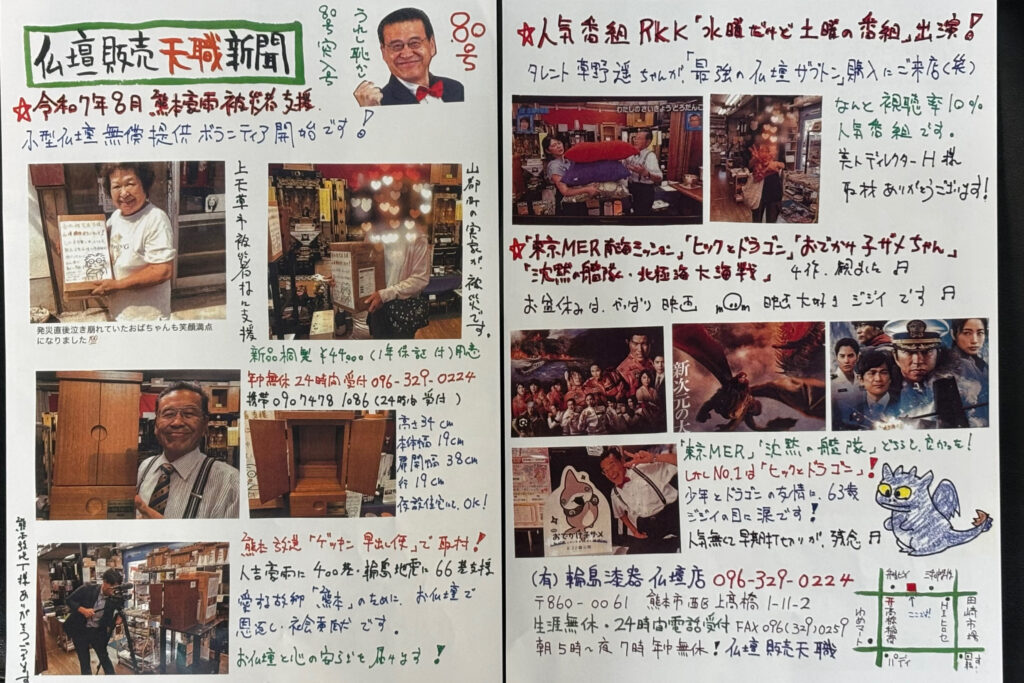 仏壇販売天職新聞
うれし恥かし
80号突入号
80号
☆令和7年8月 熊本豪雨被災者支援
小型仏壇無償提供ボランティア開始です!
上天草市被災者様に支援
山都町の実家が、被災です。
発災直後泣き崩れていたおばちゃんも笑顔満点
になりました
新品桐製 ¥44,000(1年保証付)用意
年中無休24時間受付096-329-0224
携帯090 7478 1086(24時間受付)
高さ34cm
本体幅19cm
扉開幅38cm
行19cm
仮設住宅にも、OK!
熊本放送「ゲツキン早出し便」で取材!
人吉豪雨に400基・輪島地震に66基支援
愛する故郷「熊本」のために、お仏壇で
恩返し・社会貢献です。
お仏壇と心の安らぎを届けます!
☆人気番組RKK「水曜だけど土曜の番組」出演!
タレント草野遥ちゃんが、「最強の仏壇ザブトン」購入にご来店(笑)
わたしのさいきょうとろたんこ
なんと視聴率10%
人気番組です。
美人ディレクターH様
取材ありがとうございます!
☆「東京MER南海ミッション」「ヒックとドラゴン」「おでかけ子ザメちゃん」
「沈黙の艦隊・北極海大海戦」 4作、観ました♬
お盆休みは、やっぱり映画 映画大好きジジイです♬
新次元の
「東京MER」「沈黙の艦隊」どちらも、良かった!
しかしNo.1は「ヒックとドラゴン」!
少年とドラゴンの友情に、63歳
ジジイの目に涙です!
人気無くて早期打ち切りが、残念♬
おでかけ子ザメ
(有)輪島漆器仏壇店 096-329-0224
〒860-0061 熊本市西区上高橋1-11-2
生涯無休・24時間電話受付 FAX096(329)0259
朝5時〜夜7時年中無休!仏壇販売天職
ここだよ
高橋稲荷
田崎市場